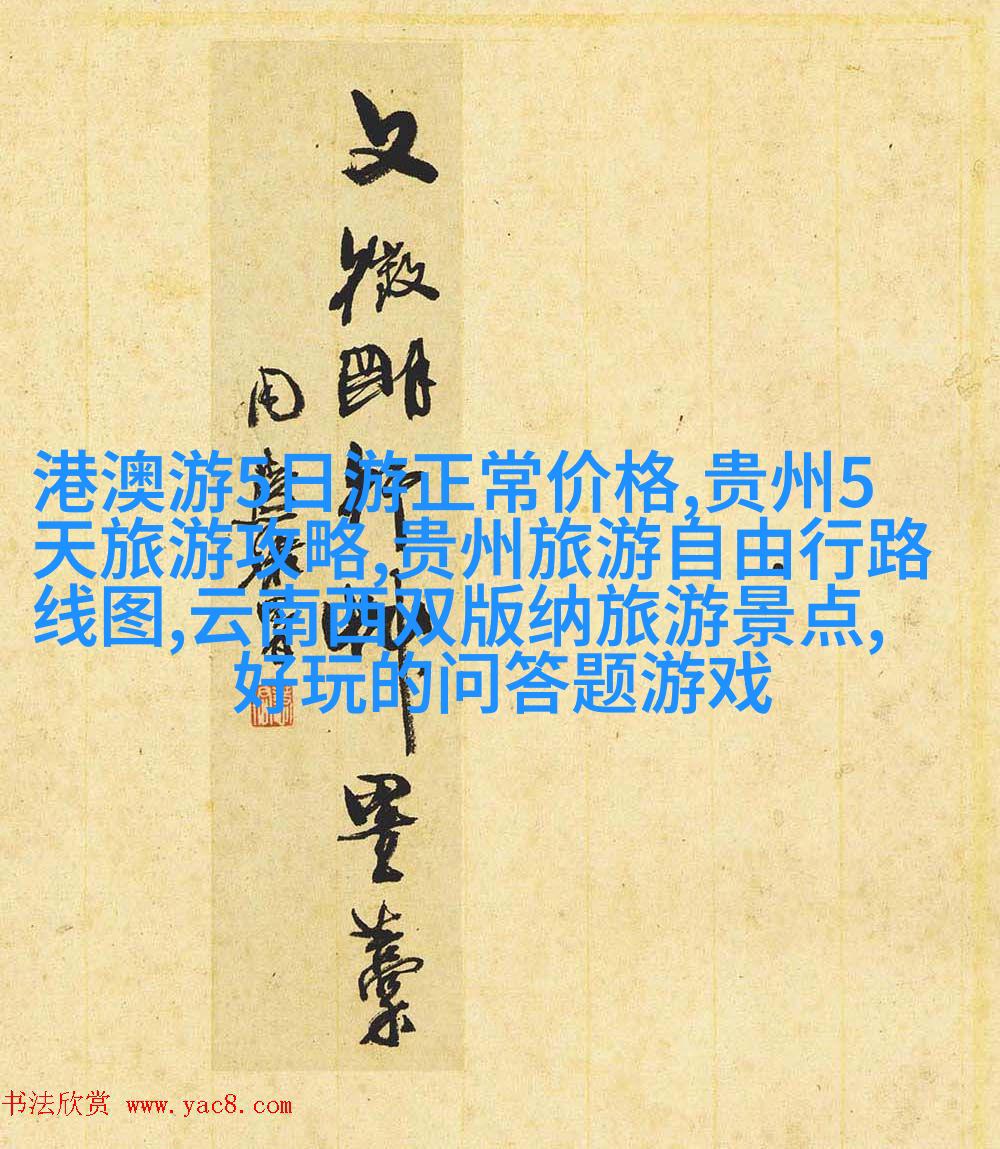 港澳游5日游正常价格,贵州5
天旅游攻略,贵州旅游自由行路
线图,云南西双版纳旅游景点,
好玩的问答题游戏
文徵明
墨藁
书法欣赏 www.yac8.com